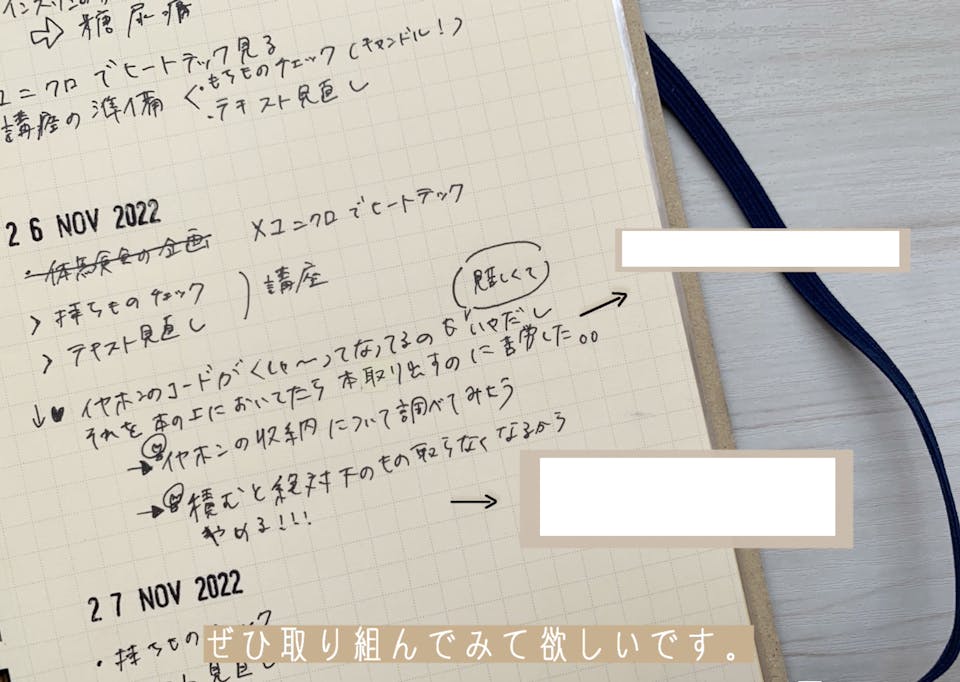 ⇨ 糖尿病
ユニクロでヒートテック見る
講座の準備 < ・もちものチェック(キャンドル!)
・テキスト見直し
26 NOV 2022
・体験食会の企画
×ユニクロでヒートテック
> 持ちものチェック
> テキスト見直し
) 講座
(見苦しくて)
↓♥ イヤホンのコードがくしゃ〜ってなってるのもいやだし
それを本の上においてたら本取り出すのに苦労した。。
→イヤホンの収納について調べてみよう
→積むと絶対下のもの取らなくなるから
やめる!!!
27 NOV 2022
・持ちものチック
見直し
ぜひ取り組んでみて欲しいです。